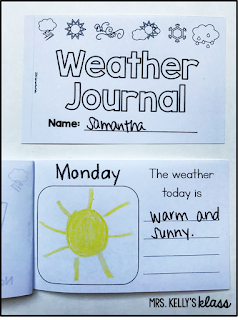 Weather
Journal
Name: Samantha
Monday
The weather
today is
warm and
sunny.
MRS. KELLY'S klass